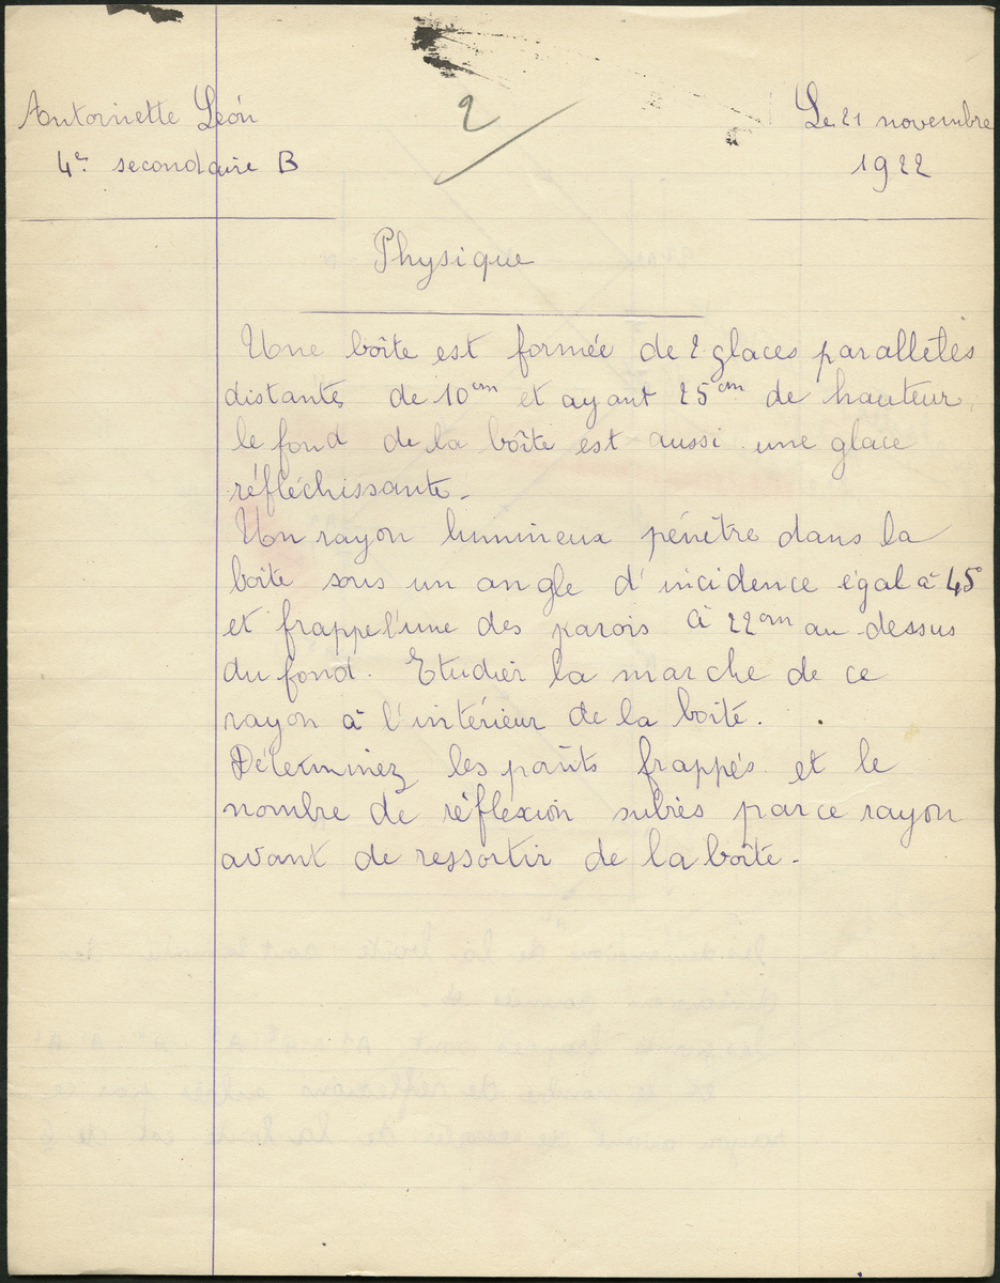 Antoinette Léon
Le 21 novembre
4e secondaire B
1922
2
Physique
Une boîte est formée de 2 glaces parallèles
distantes de 10 cm et ayant 25 cm de hauteur,
le fond de la boîte est aussi une glace
réfléchissante.
Un rayon lumineux pénètre dans la
boite sous un angle d'incidence égal à 45°
et frappe l'une des parois à 22 cm au-dessus
du fond. Etudier la marche de ce
rayon à l'intérieur de la boite.
Déterminez les points frappés et le
nombre de réflexion subies par ce rayon
avant de ressortir de la boîte.